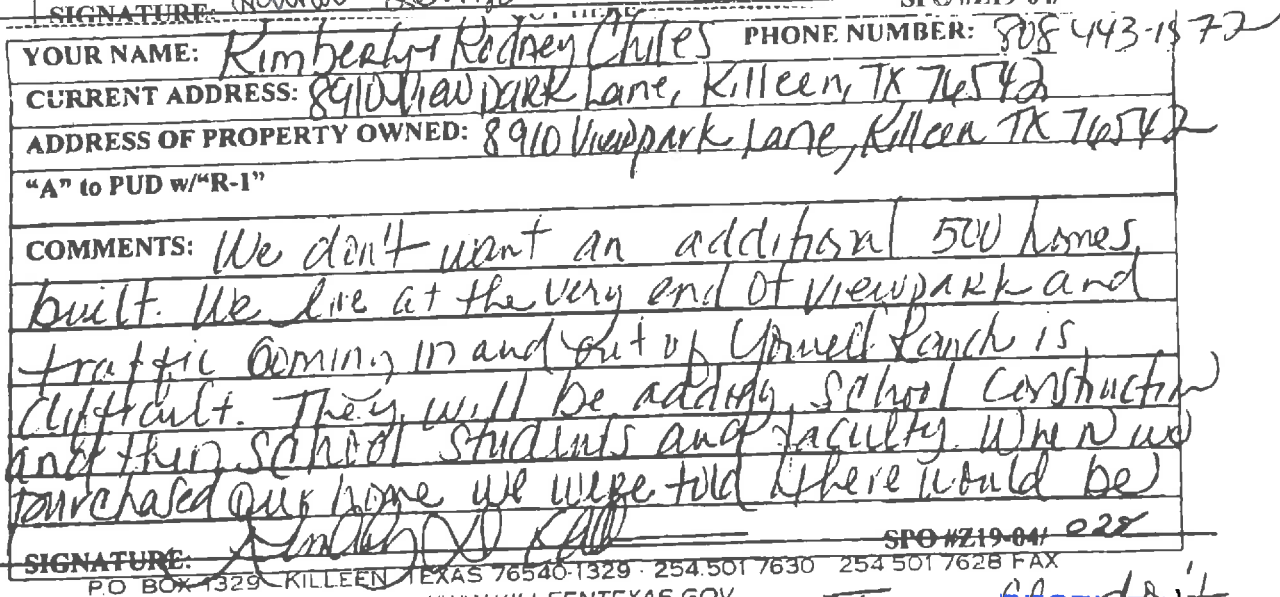 SIGNATURE:
YOUR NAME: Kimberly & Rodney Chiles PHONE NUMBER: 808 443-1872
CURRENT ADDRESS: 8910 Viewpark Lane, Killeen, TX 76542
ADDRESS OF PROPERTY OWNED: 8910 Viewpark Lane, Killeen TX 76542
"A" to PUD w/"R-1"
COMMENTS: We don't want an additional 500 homes
built. We live at the very end of Viewpark and
traffic coming in and out of Yowell Ranch is
difficult. They will be adding school construction
and then school students and faculty. When we
purchased our home we were told there would be
SIGNATURE: SPO #Z19-04/ 028
P.O BOX 1329 KILLEEN TEXAS 76540-1329 · 254.501 7630 254 501 7628 FAX
WWW.KILLEENTEXAS.GOV